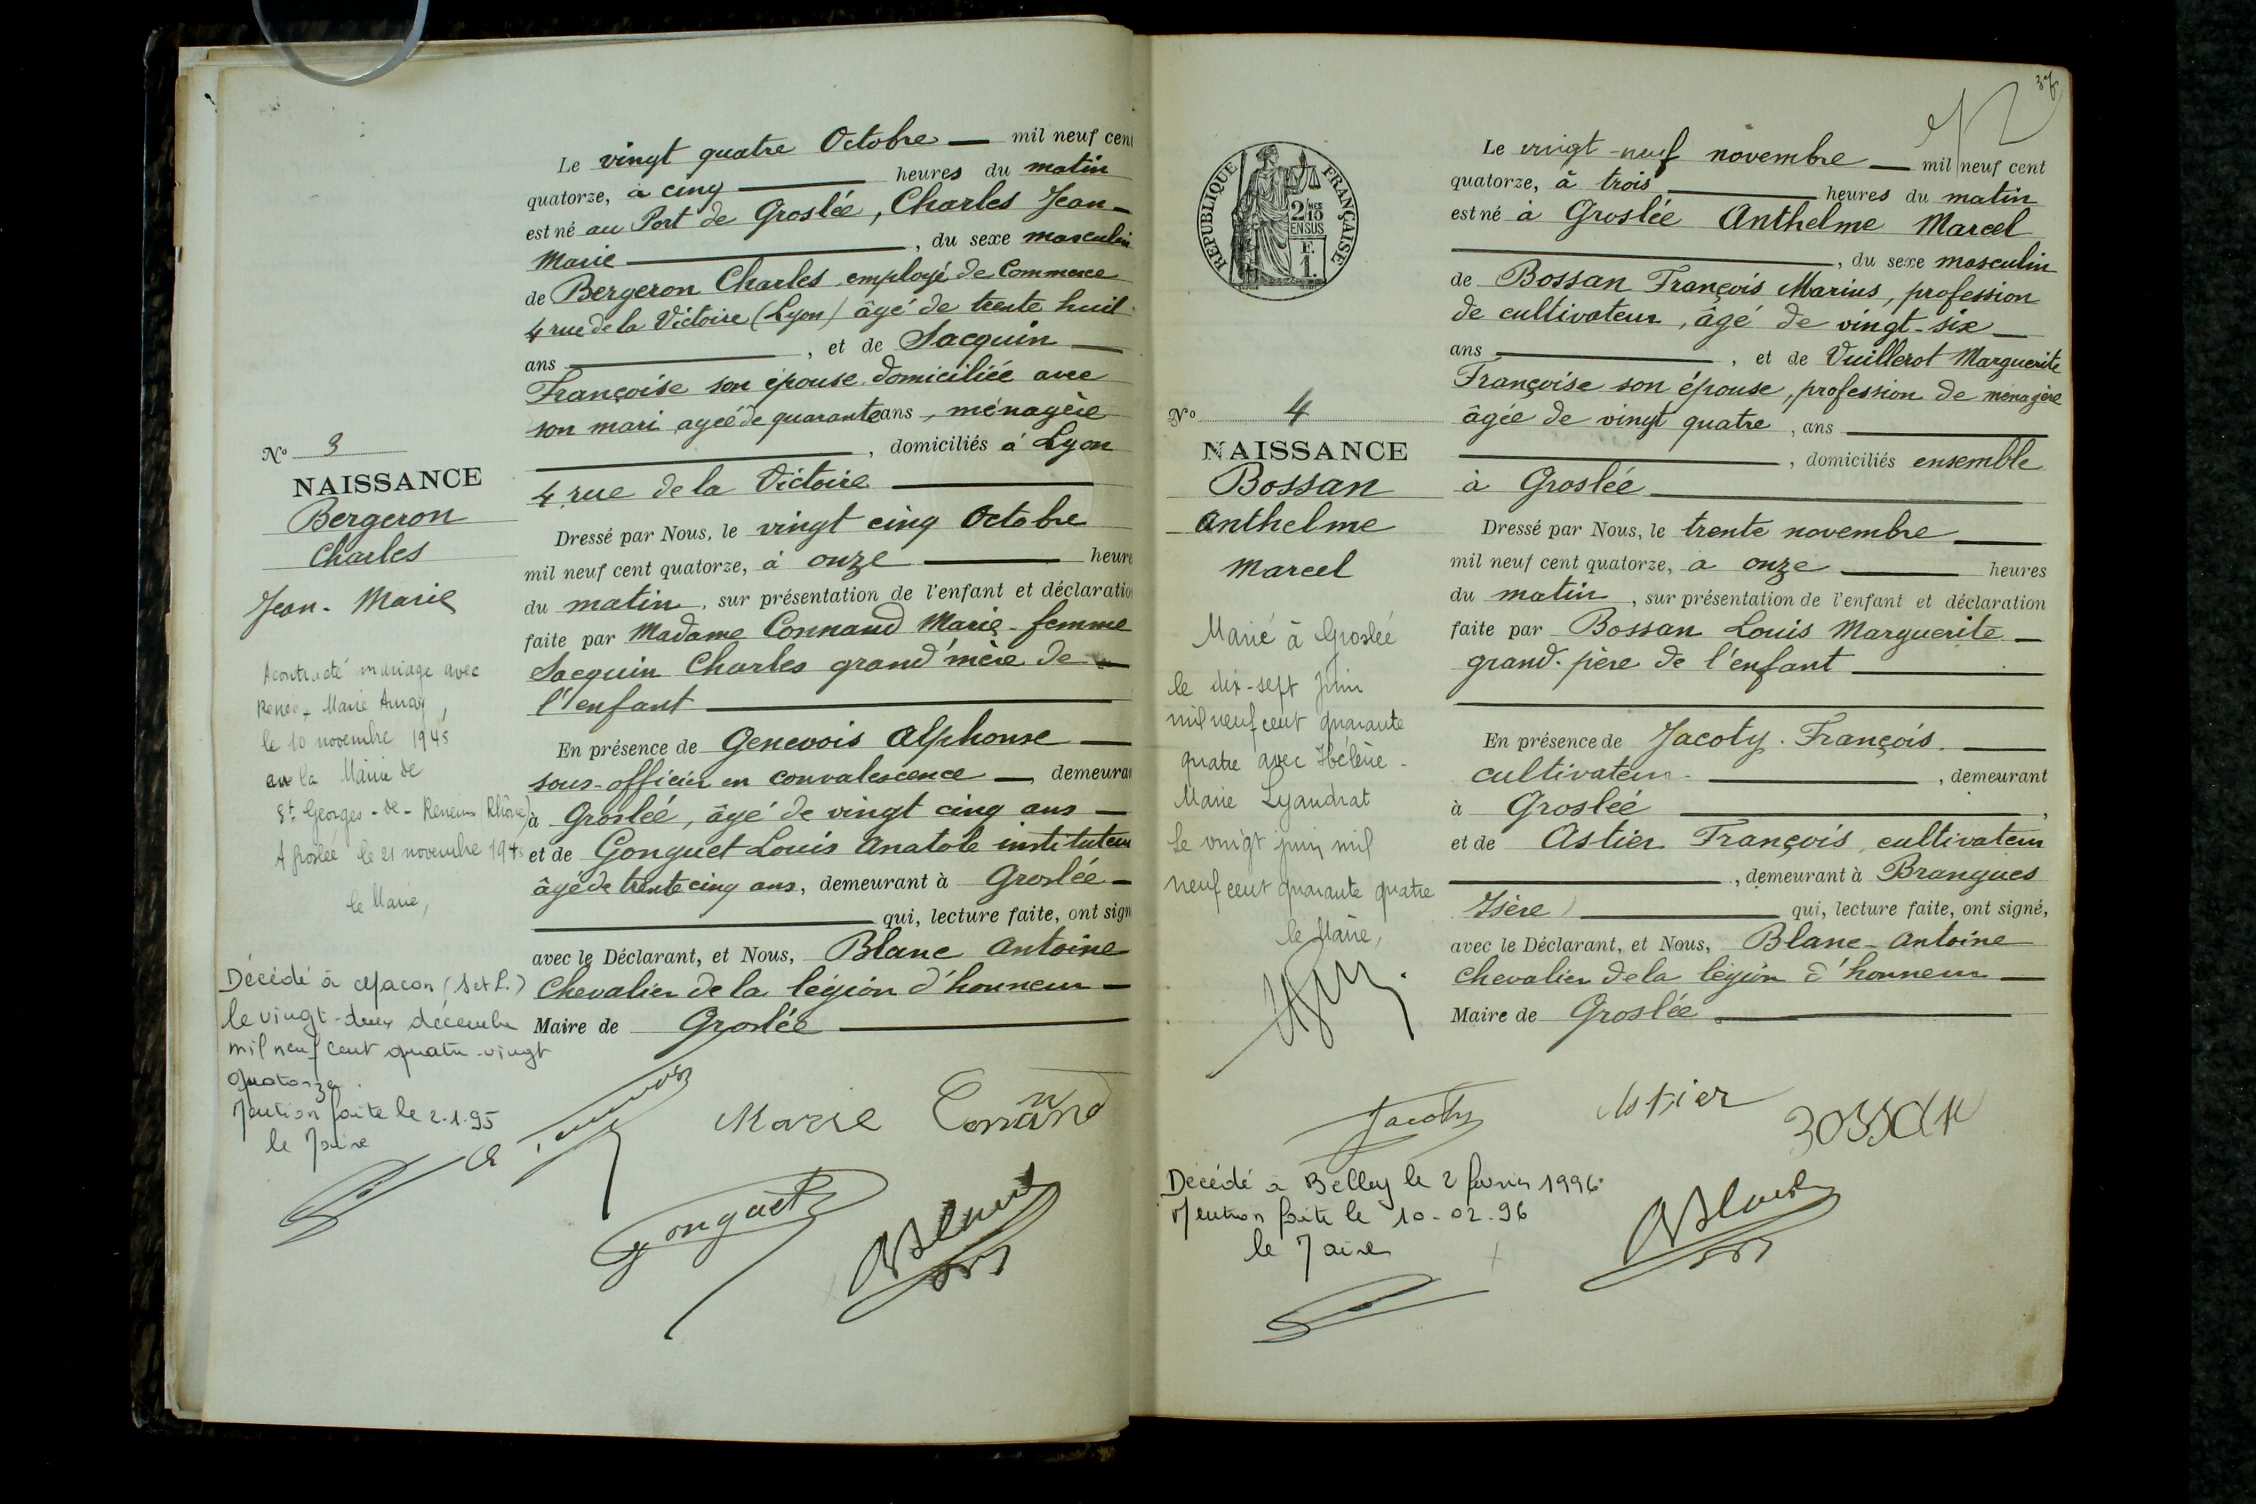 Le vingt quatre Octobre — mil neuf cent
quatorze, à cinq — heures du matin
est né au Port de Groslée, Charles Jean-
Marie —, du sexe masculin
de Bergeron Charles employé de Commerce
4 rue de la Victoire (Lyon) âgé de trente huit
ans —, et de Jacquin —
Françoise son épouse domiciliée avec
son mari agée de quarante ans, ménagère
—, domiciliés à Lyon
4 rue de la Victoire —
Dressé par Nous, le vingt cinq Octobre
mil neuf cent quatorze, à onze — heure
du matin, sur présentation de l'enfant et déclaration
faite par Madame Connand Marie - femme
Jacquin Charles grand'mère de —
l'enfant —
En présence de Genevois Alphonse —
sous-officier en convalescence —, demeurant
à Groslée, âgé de vingt cinq ans —
et de Gonguet Louis Anatole instituteur
âgé de trente cinq ans, demeurant à Groslée —
— qui, lecture faite, ont signé
avec le Déclarant, et Nous, Blanc Antoine
Chevalier de la légion d'honneur —
Maire de Groslée —
N° 3
NAISSANCE
Bergeron
Charles
Jean - Marie
A contracté mariage avec
Renée Marie
le 10 novembre 1945
en la Mairie de
St Georges - de - Reneins (Rhône)
A Groslée le 21 novembre 1945
le Maire,
Décédé à Macon (S et L.)
le vingt-deux décembre
mil neuf cent quatre-vingt
quatorze.
Mention faite le 2.1.95
le Maire
Marie Connand
Gonguet
ABlanc
37
Le vingt-neuf novembre — mil neuf cent
quatorze, à trois — heures du matin
est né à Groslée Anthelme Marcel
—, du sexe masculin
de Bossan François Marius, profession
de cultivateur, âgé de vingt-six —
ans —, et de Vuillerot Marguerite
Françoise son épouse, profession de ménagère
âgée de vingt quatre, ans —
—, domiciliés ensemble
à Groslée —
Dressé par Nous, le trente novembre —
mil neuf cent quatorze, à onze — heures
du matin, sur présentation de l'enfant et déclaration
faite par Bossan Louis Marguerite —
grand-père de l'enfant —
En présence de Jacoty François. —
cultivateur. —, demeurant
à Groslée —,
et de Astier François, cultivateur
—, demeurant à Brangues
Isère) — qui, lecture faite, ont signé,
avec le Déclarant, et Nous, Blanc-Antoine
Chevalier de la légion d'honneur —
Maire de Groslée. —
RÉPUBLIQUE FRANÇAISE
2/10
EN SUS
F.
1.
N° 4
NAISSANCE
Bossan
Anthelme
Marcel
Marié à Groslée
le dix-sept juin
mil neuf cent quarante
quatre avec Hélène -
Marie Lyandrat
Le vingt juin mil
neuf cent quarante quatre
le Maire,
Jacoty
Astier
Bossan
Décédé à Belley le 2 février 1996.
Mention faite le 10-02-96
le Maire
ABlanc